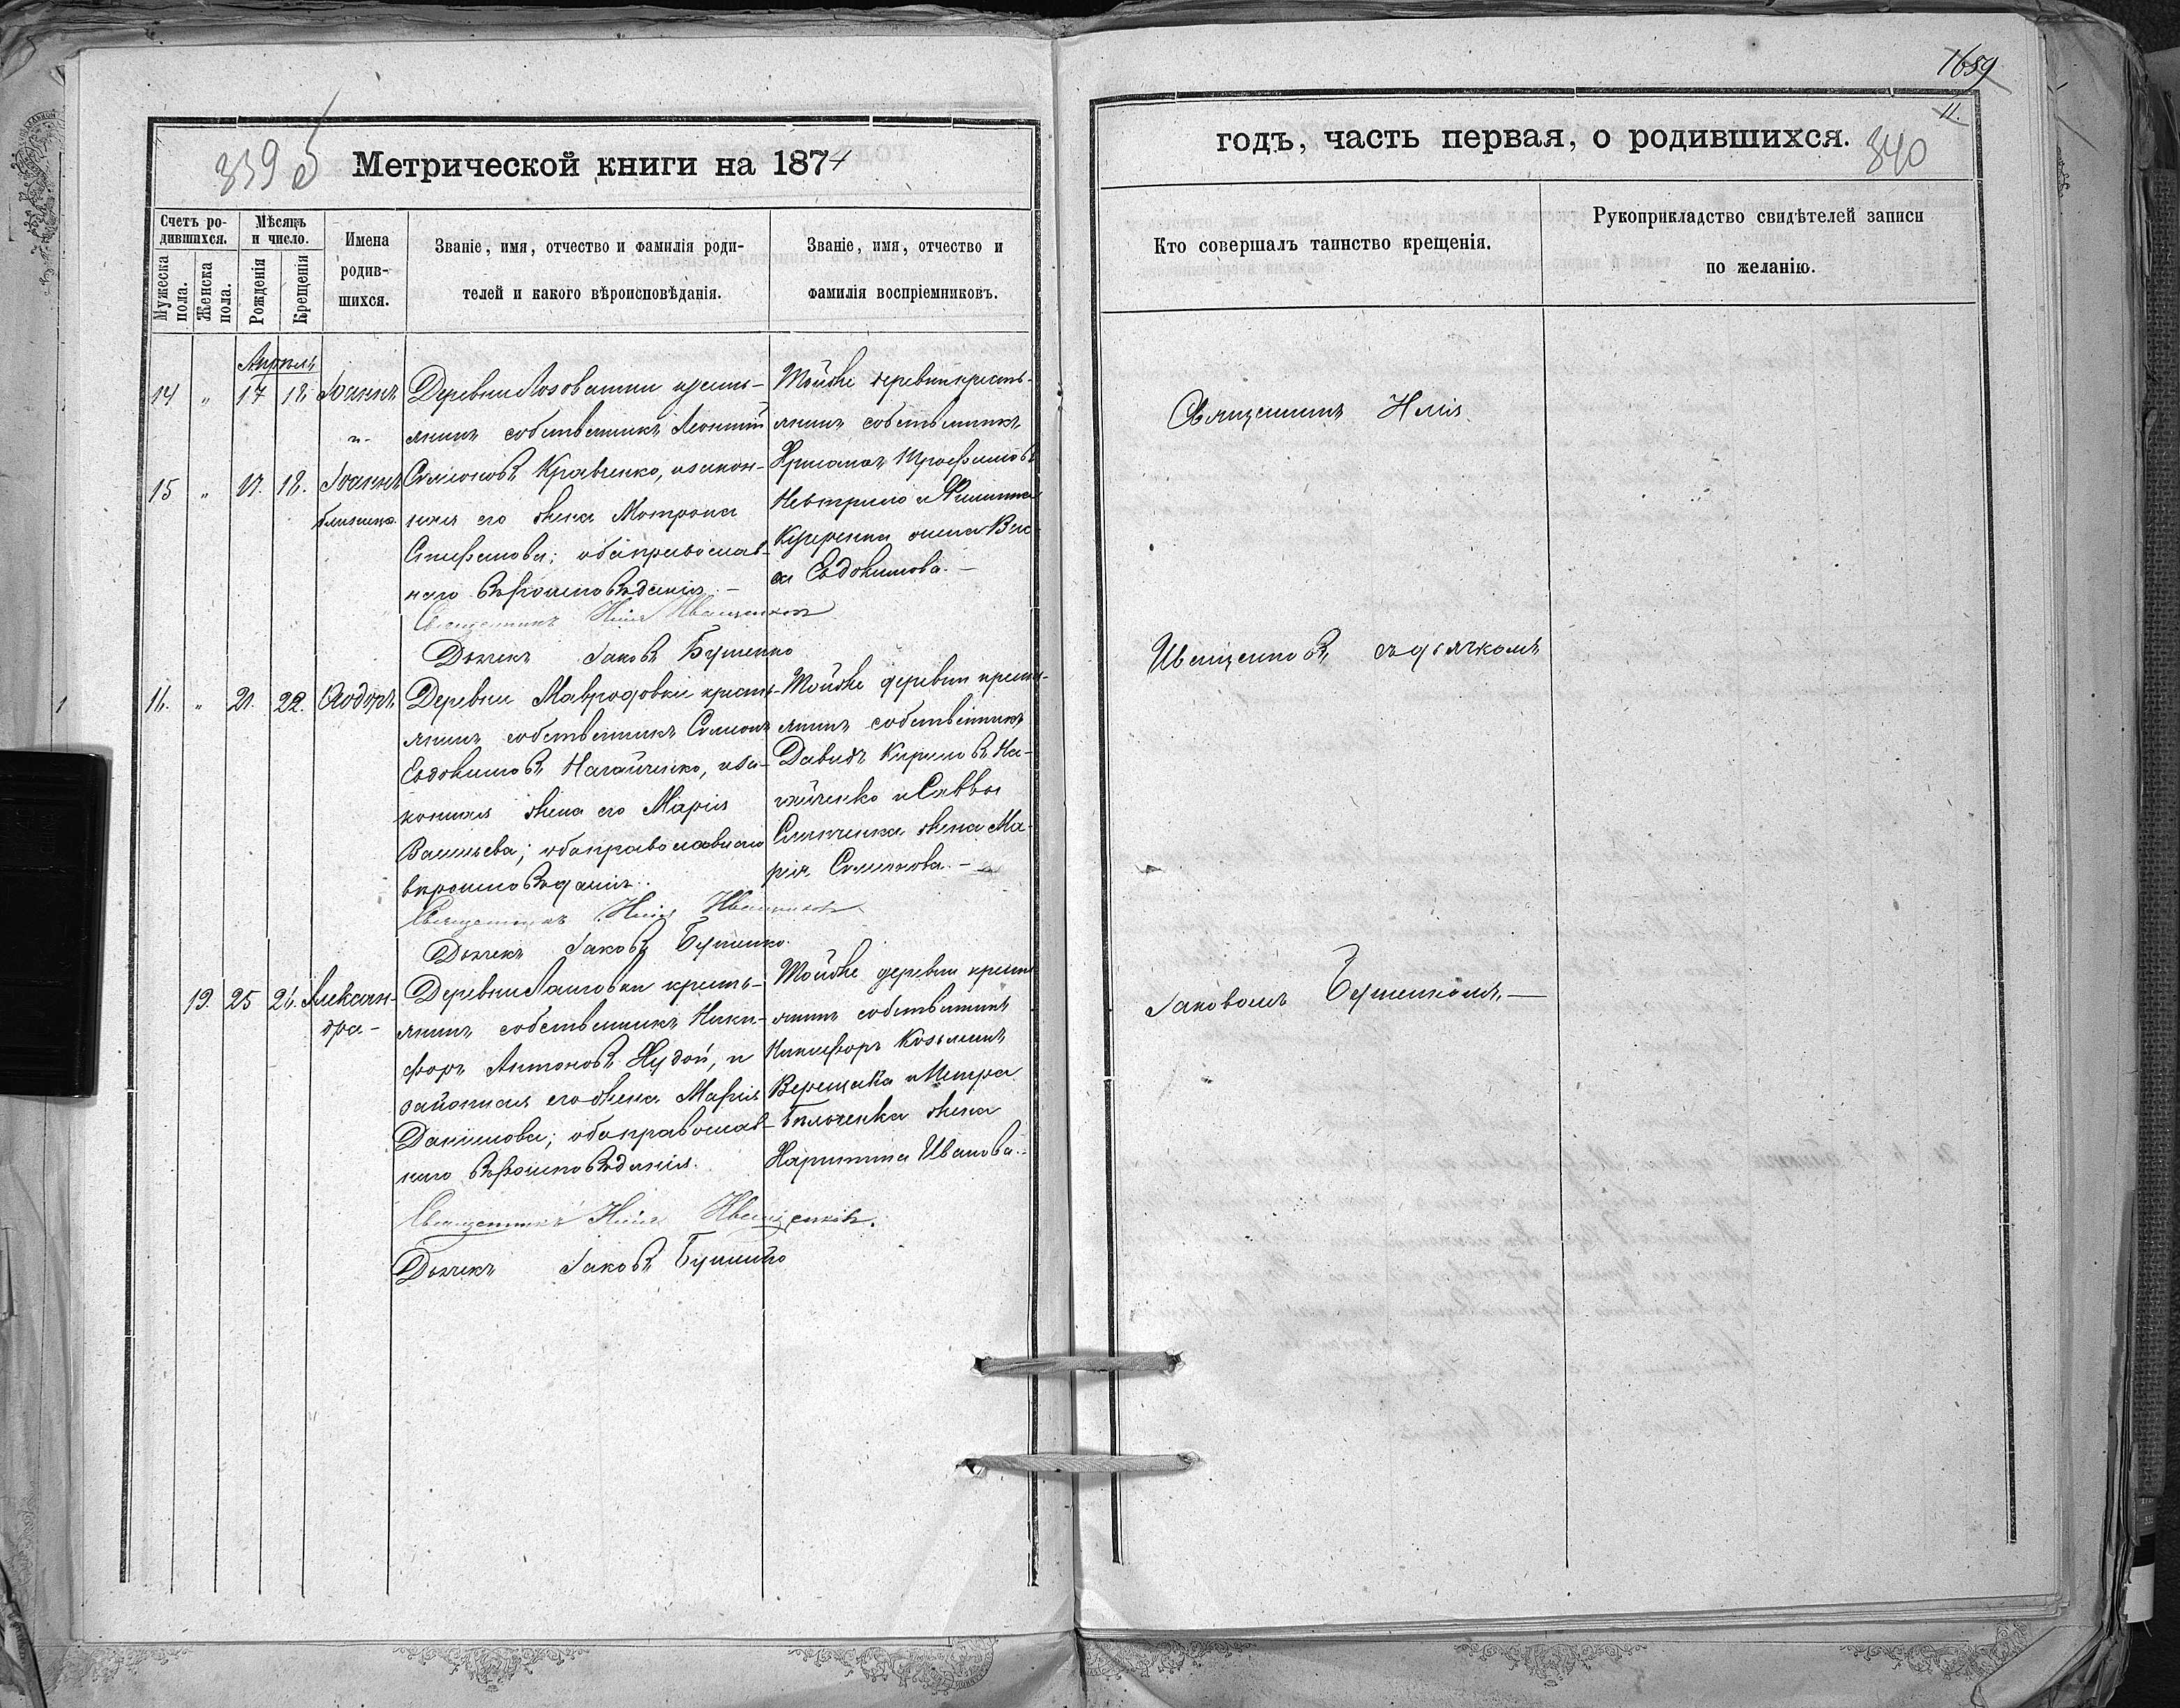 339 б
Метрической книги на 1874
Счетъ ро-
дившихся.
Мужеска пола.
Женска пола.
Мѣсяцъ и число.
Рожденія
Крещенія
Имена
родив-
шихся.
Званіе, имя, отчество и фамилія роди-
телей и какого вѣроисповѣданія.
Званіе, имя, отчество и
фамилія воспріемниковъ.
Апрѣль
14 " 17 18 Іоаннъ
и
15 " 17. 18. Іоаннъ
близнецы
Деревни Лозоватки кресть-
янинъ собственникъ Леонтій
Симоновъ Кравченко, и закон-
ная его жена Матрона
Стефанова; оба православ-
наго вѣроисповѣданія. -
Священникъ Илія Иващенковъ
Дьячекъ Іаковъ Бутенко
Тойже деревни кресть-
янинъ собственникъ
Трофимовъ
жена
Евдокимова. -
16. " 21. 22. Ѳеодоръ
Деревни Мавродовки кресть-
янинъ собственникъ Симонъ
Евдокимовъ Нагайченко, и за-
конная жена его Марія
Васильева; оба православнаго
вѣроисповѣданія.
Священникъ Илія Иващенковъ
Дьячекъ Іаковъ Бутенко.
Тойже деревни кресть-
янинъ собственникъ
Давидъ Кириловъ На-
гайченко и Саввы
жена Ма-
рія Симонова. -
19. 25 26. Алексан-
дра -
Деревни кресть-
янинъ собственникъ Ники-
форъ Антоновъ Нудой, и
законная его жена Марія
Данилова; оба православ-
наго вѣроисповѣданія.
Священникъ Илія Иващенковъ.
Дьячекъ Іаковъ Бутенко
Тойже деревни кресть-
янинъ собственникъ
Никифоръ Козьминъ
Верещака и Петра
жена
Харитина Иванова. -
1659
11.
годъ, часть первая, о родившихся.
340
Кто совершалъ таинство крещенія.
Рукоприкладство свидѣтелей записи
по желанію.
Священникъ Илія
Иващенковъ съ дьячкомъ
Іаковомъ Бутенкомъ. -